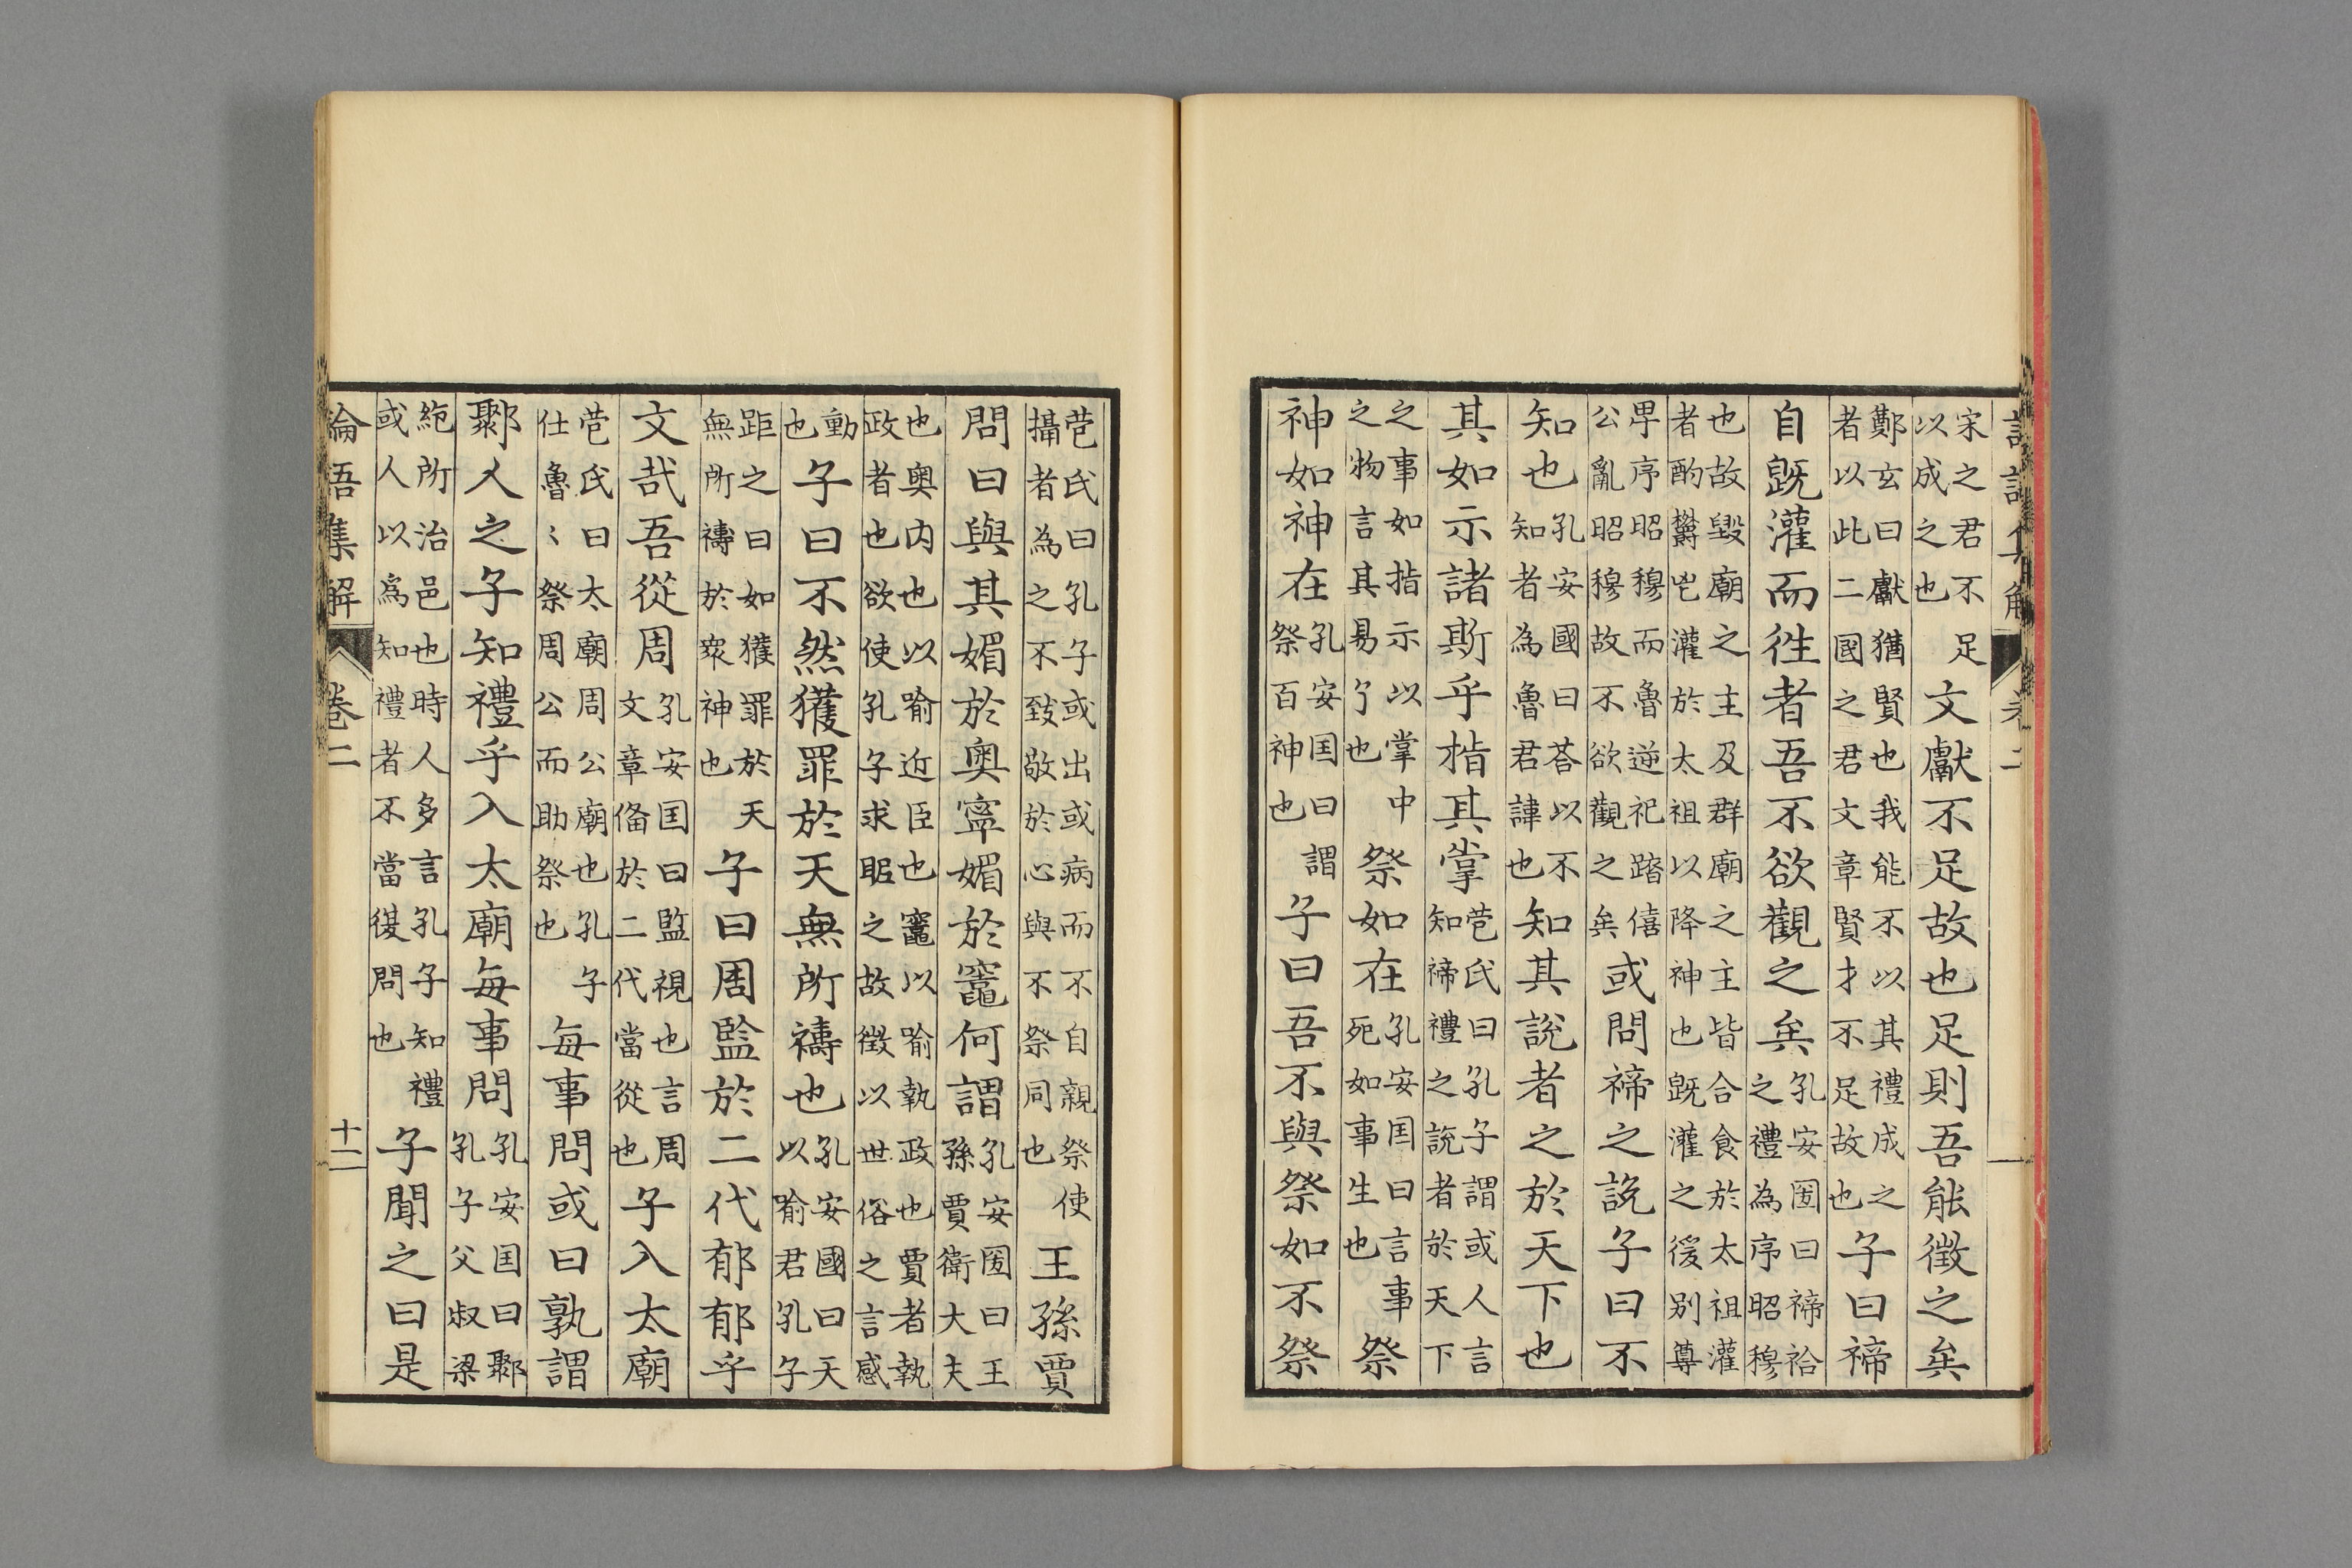 宋之君不足以成之也文獻不足故也足則吾能徵之矣
鄭玄曰獻猶賢也我能不以其禮成之者以此二國之君文章賢才不足故也子曰禘
自既灌而往者吾不欲觀之矣孔安囯曰禘祫之禮為序昭穆
也故毀廟之主及群廟之主皆合食於太祖灌者酌鬱鬯灌於太祖以降神也既灌之後别尊
卑序昭穆而魯逆祀躋僖公亂昭穆故不欲觀之矣或問禘之說子曰不
知也孔安國曰荅以不知者為魯君諱也知其說者之於天下也
其如示諸斯乎指其掌苞氏曰孔子謂或人言知禘禮之說者於天下
之事如指示以掌中之物言其易了也祭如在孔安囯曰言事死如事生也祭
神如神在孔安囯曰謂祭百神也子曰吾不與祭如不祭
苞氏曰孔子或出或病而不自親祭使攝者為之不致敬於心與不祭同也王孫賈
問曰與其媚於奧寧媚於竈何謂孔安囯曰王孫賈衛大夫
也奧内也以喻近臣也竈以喻執政也賈者執政者也欲使孔子求昵之故微以世俗之言感
動也子曰不然獲罪於天無所禱也孔安國曰天以喻君孔子
距之曰如獲罪於天無所禱於衆神也子曰周監於二代郁郁乎
文哉吾從周孔安囯曰監視也言周文章俻於二代當從也子入太廟
苞氏曰太廟周公廟也孔子仕魯〻祭周公而助祭也每事問或曰孰謂
鄹人之子知禮乎入太廟每事問孔安囯曰鄹孔子父叔梁
紇所治邑也時人多言孔子知禮或人以為知禮者不當復問也子聞之曰是
論語集解 卷二 十二